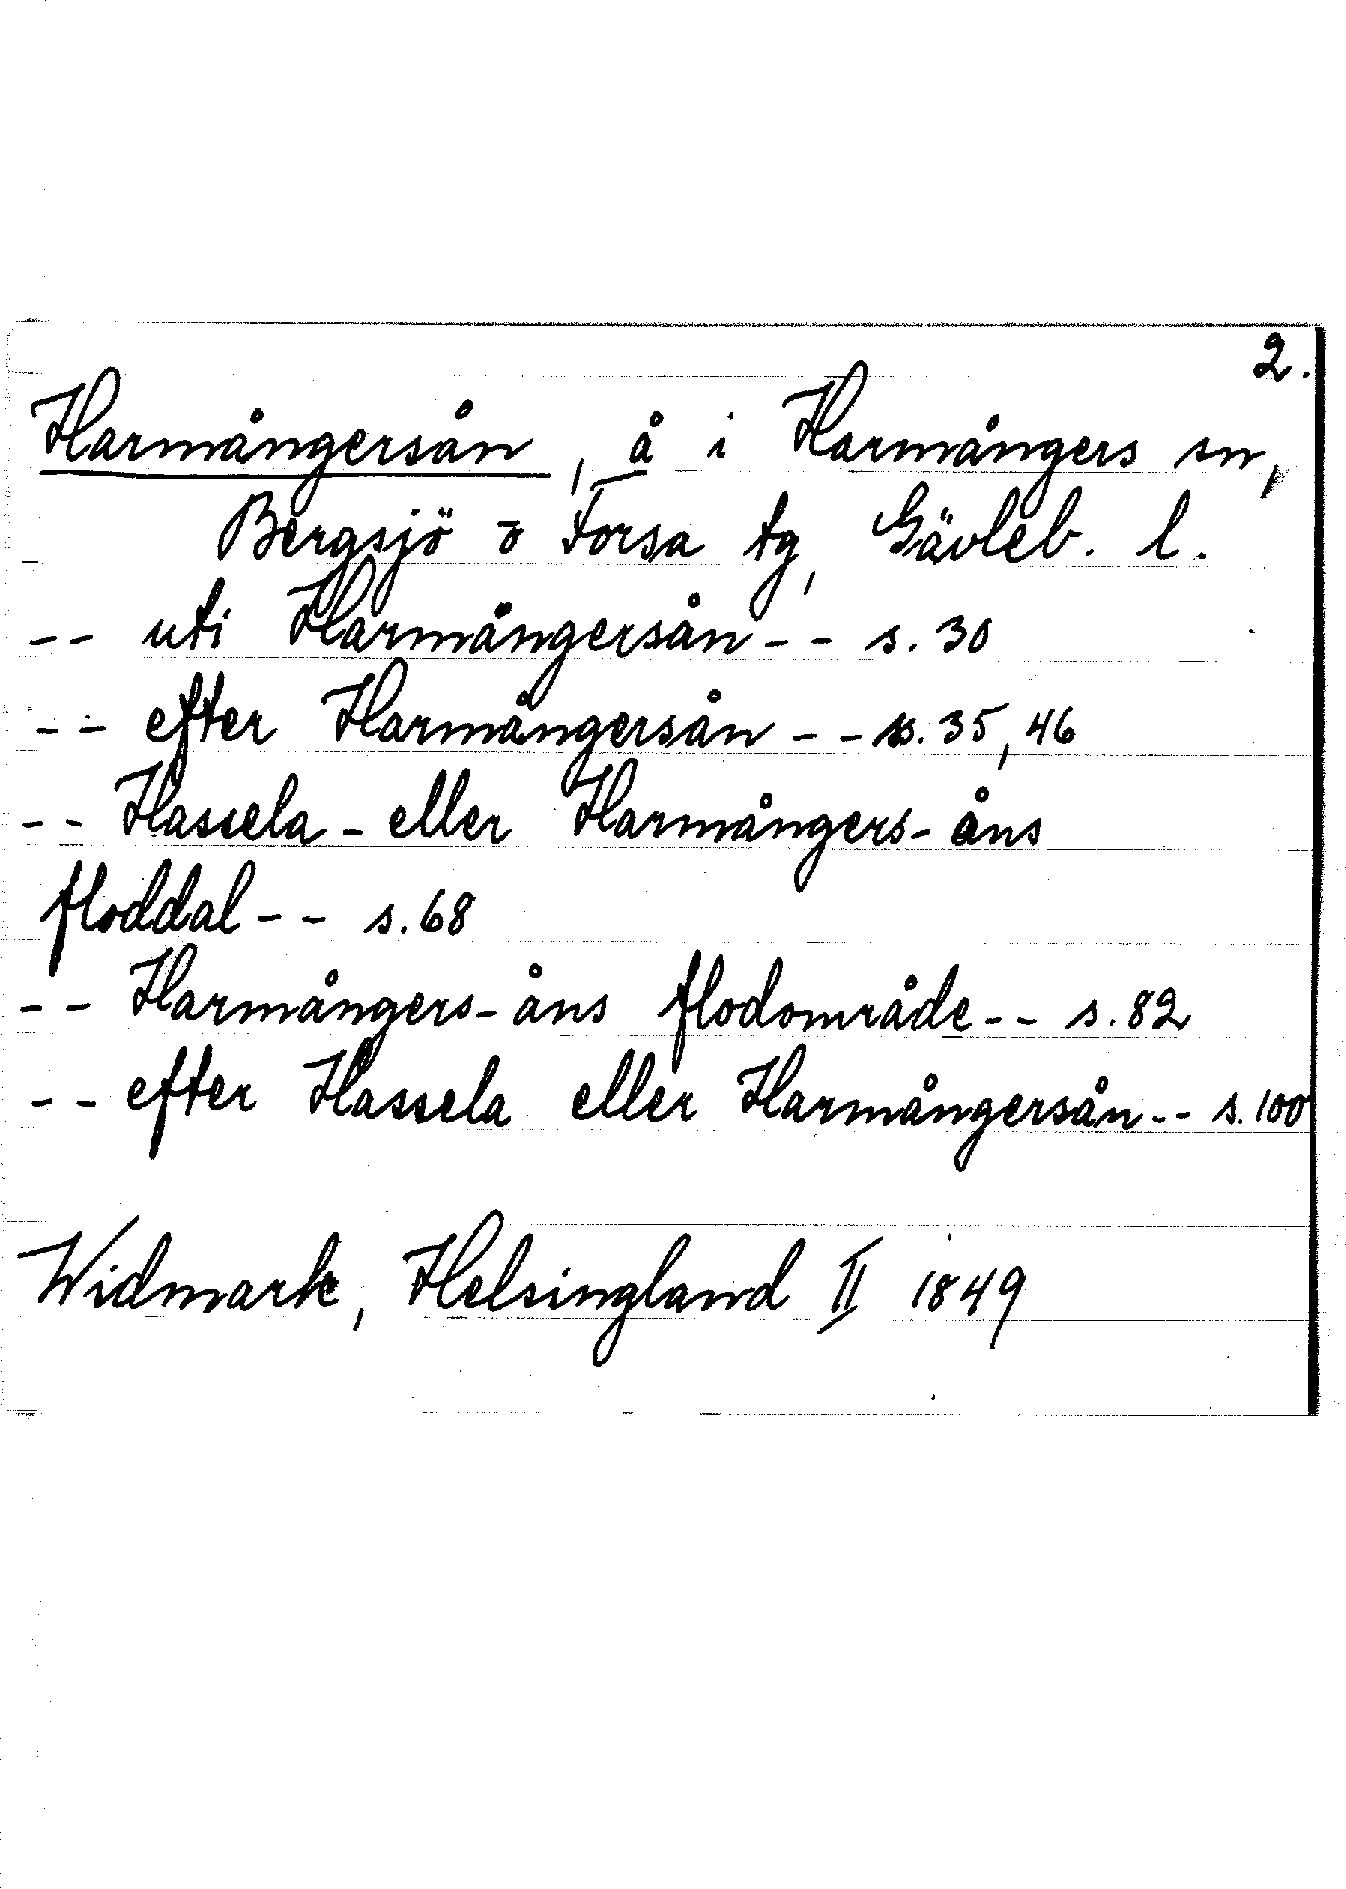 2.
Harmångersån, å i Harmångers sn,
Bergsjö o Forsa tg, Gävleb. l.
-- uti Harmångersån -- s. 30
-- efter Harmångersån -- s. 35, 46
-- Hassela- eller Harmångers-åns
floddal -- s. 68
-- Harmångers-åns flodområde -- s. 82
-- efter Hassela eller Harmångersån -- s. 100
Widmark, Helsingland II 1849